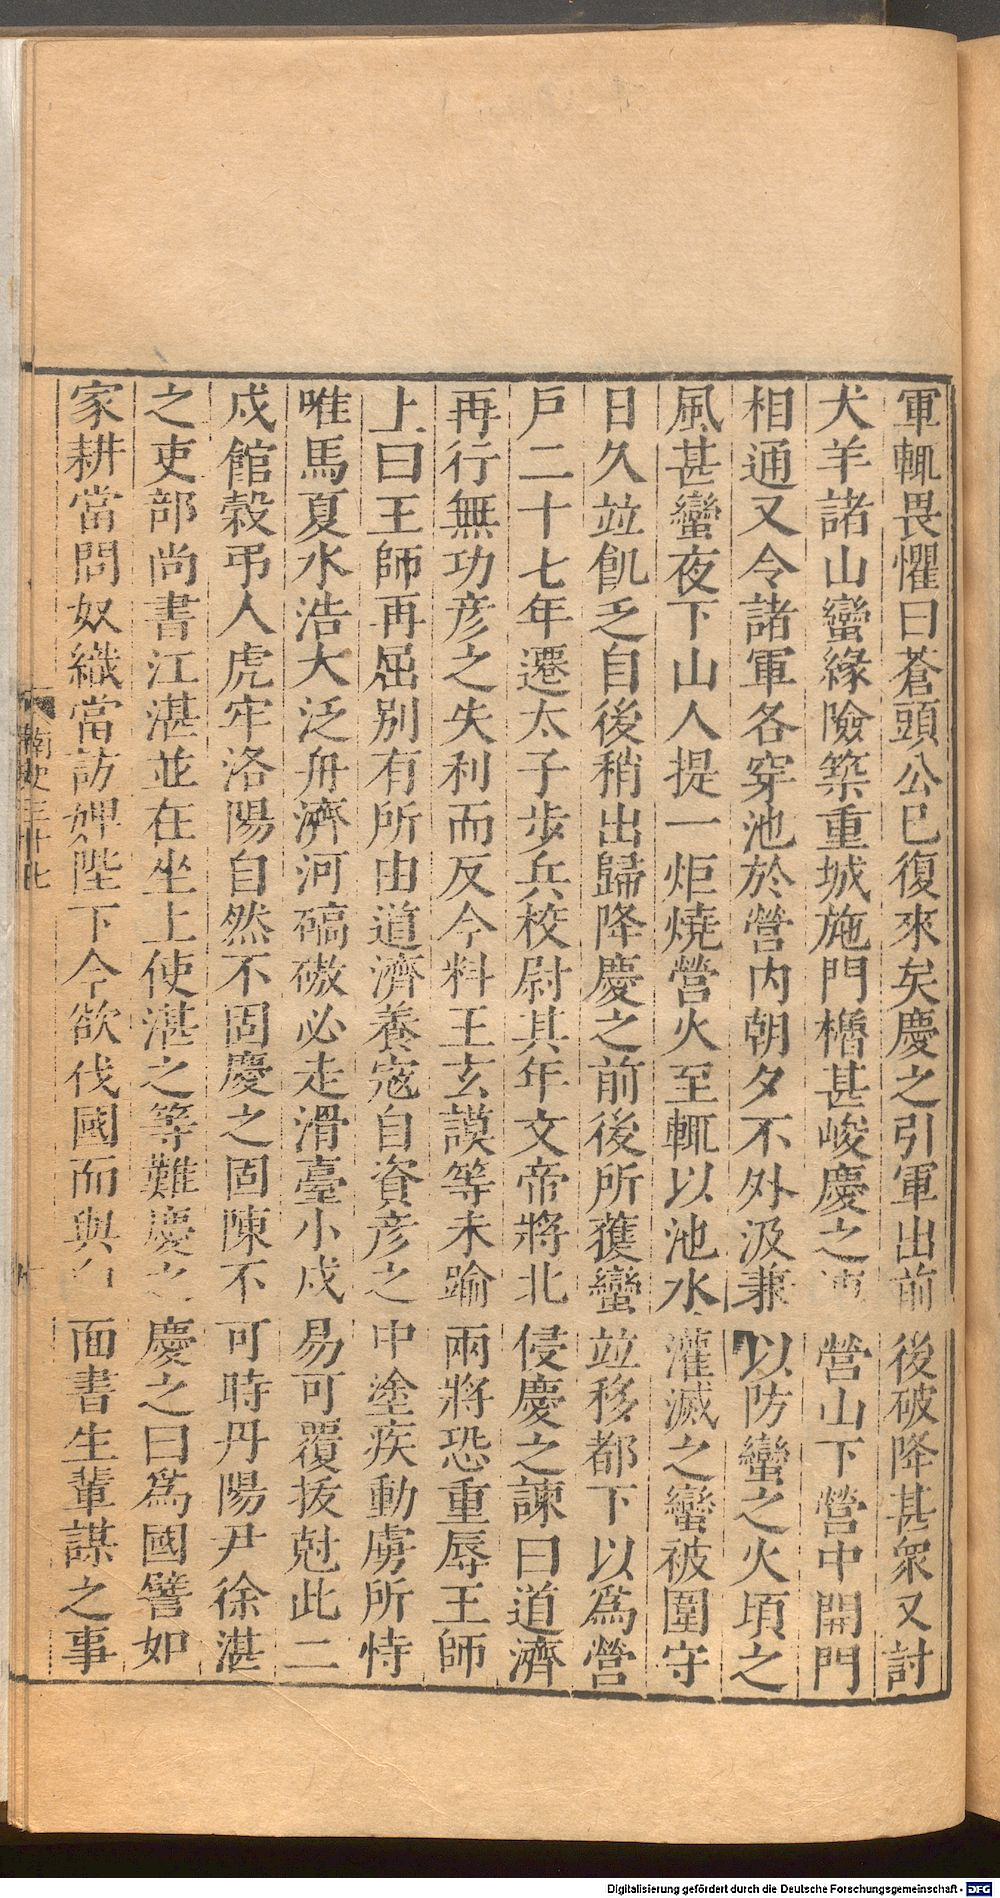 軍輒畏懼曰蒼頭公已復來矣慶之引軍出前後破降甚衆又討
犬羊諸山蠻緣險築重城施門櫓甚峻慶之營山下營中開門
相通又令諸軍各穿池於營内朝夕不外汲兼以防蠻之火頃之
風甚蠻夜下山人提一炬燒營火至輒以池水灌滅之蠻被圍守
日久並飢乏自後稍出歸降慶之前後所獲蠻並移都下以為營
戶二十七年遷太子步兵校尉其年文帝將北侵慶之諫曰道濟
再行無功彥之失利而反今料王玄謨等未踰兩將恐重辱王師
上曰王師再屈別有所由道濟養寇自資彥之中塗疾動虜所恃
唯馬夏水浩大泛舟濟河碻磝必走滑臺小戍易可覆拔尅此二
戍館穀弔人虎牢洛陽自然不固慶之固陳不可時丹陽尹徐湛
之吏部尚書江湛並在坐上使湛之等難慶之慶之曰為國譬如
家耕當問奴織當訪婢陛下今欲伐國而與白面書生輩謀之事
南史三十七
Digitalisierung gefördert durch die Deutsche Forschungsgemeinschaft - DFG